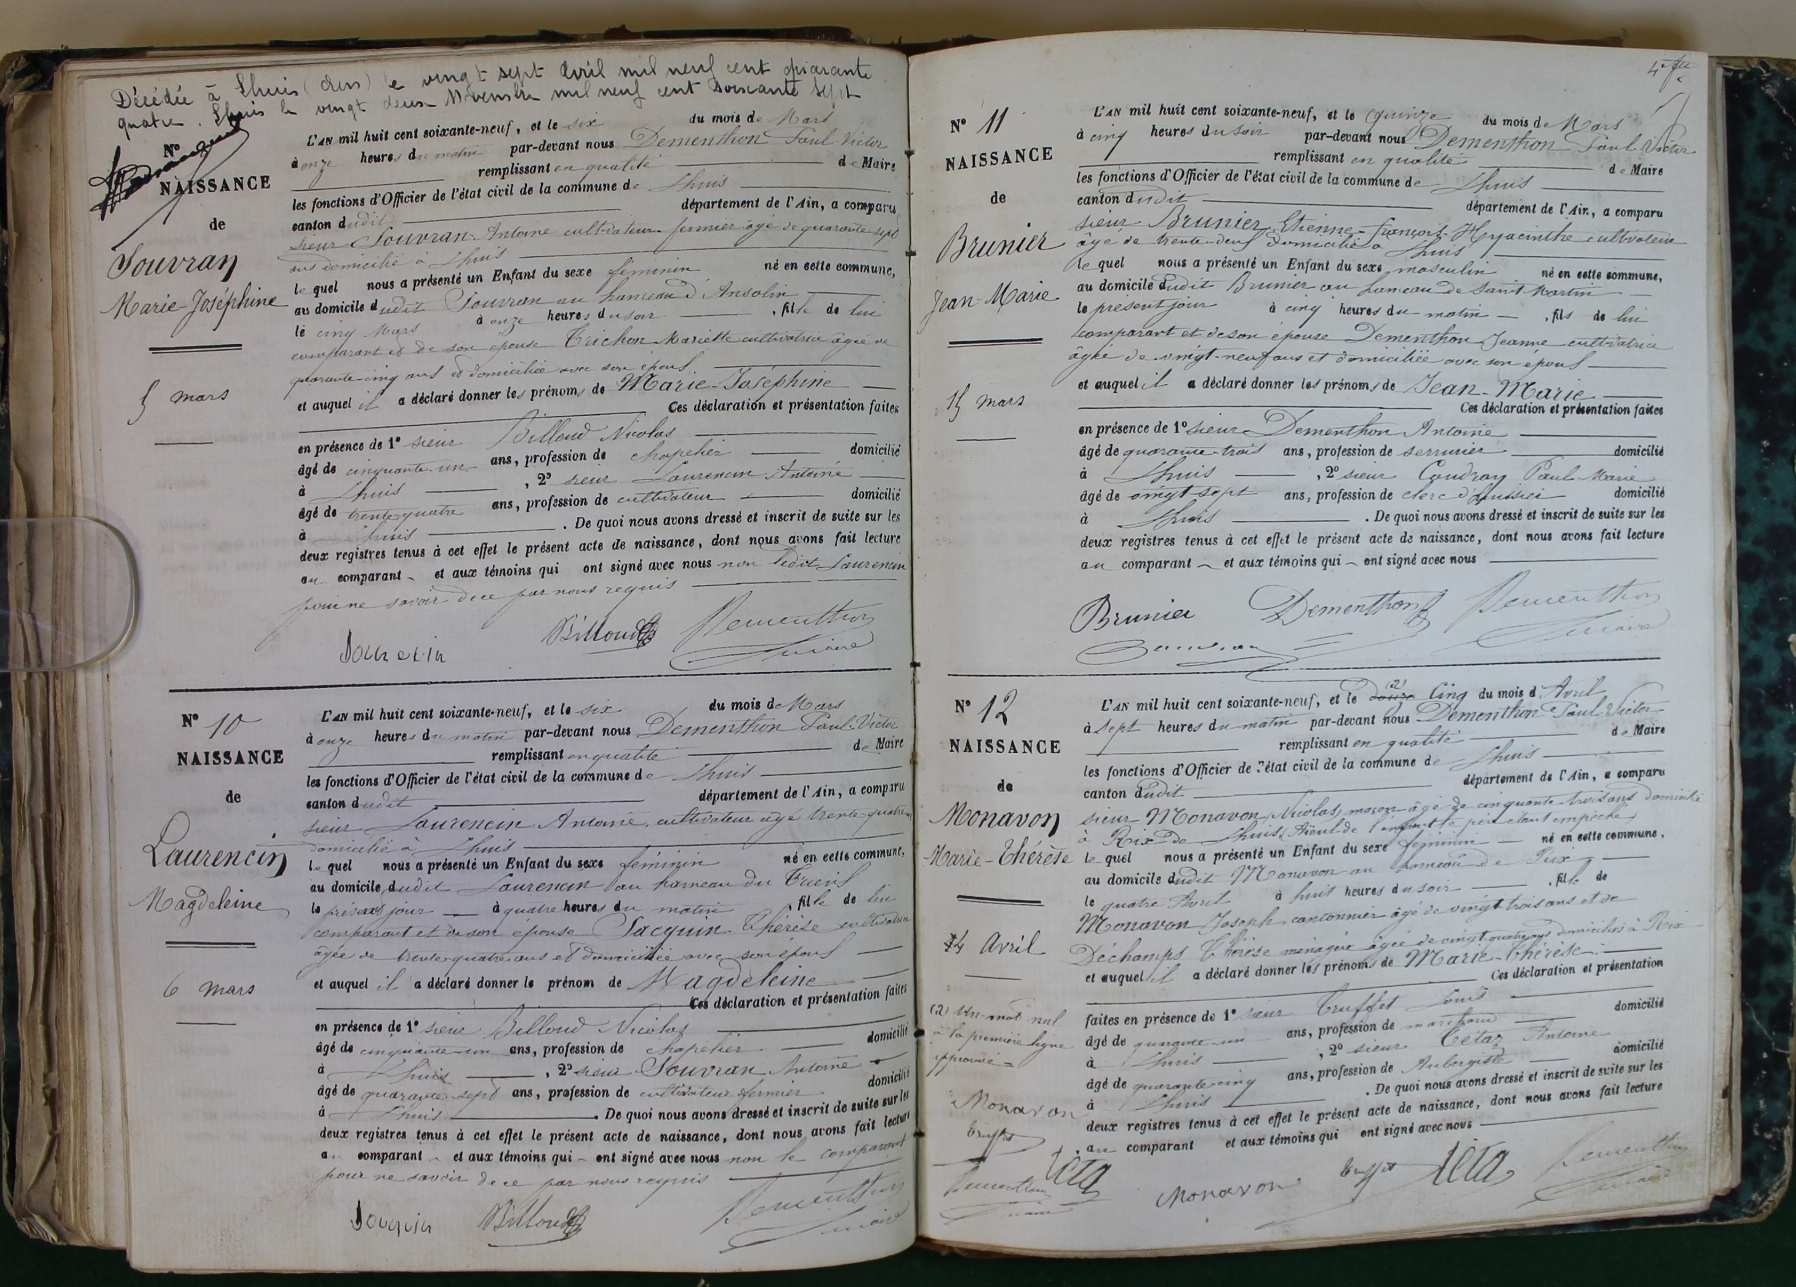 Décédée à Lhuis (Ain) le vingt sept Avril mil neuf cent quarante
quatre. Lhuis le vingt deux Novembre mil neuf cent soixante sept
N°
NAISSANCE
de
Souvran
Marie-Joséphine
5 mars
L'AN mil huit cent soixante-neuf, et le six du mois de Mars
à onze heures du matin par-devant nous Dementhon Paul-Victor
remplissant en qualité de Maire
les fonctions d'Officier de l'état civil de la commune de Lhuis
canton dudit département de l'Ain, a comparu
sieur Souvran Antoine cultivateur fermier âgé de quarante sept
ans domicilié à Lhuis
lequel nous a présenté un Enfant du sexe féminin né en cette commune,
au domicile dudit Souvran au hameau d'Ansolin
le cinq Mars à onze heures du soir , fille de lui
comparant et de son épouse Trichon Mariette cultivatrice âgée de
quarante-cinq ans et domiciliée avec son époux
et auquel il a déclaré donner les prénoms de Marie-Joséphine
Ces déclaration et présentation faites
en présence de 1° sieur Billoud Nicolas
âgé de cinquante-un ans, profession de chapelier domicilié
à Lhuis , 2° sieur Laurencin Antoine
âgé de trente quatre ans, profession de cultivateur domicilié
à Lhuis . De quoi nous avons dressé et inscrit de suite sur les
deux registres tenus à cet effet le présent acte de naissance, dont nous avons fait lecture
au comparant et aux témoins qui ont signé avec nous non ledit Laurencin
pour ne savoir de ce par nous requis
Billoud Dementhon
maire
N° 10
NAISSANCE
de
Laurencin
Magdeleine
6 mars
L'AN mil huit cent soixante-neuf, et le six du mois de Mars
à onze heures du matin par-devant nous Dementhon Paul-Victor
remplissant en qualité de Maire
les fonctions d'Officier de l'état civil de la commune de Lhuis
canton dudit département de l'Ain, a comparu
sieur Laurencin Antoine cultivateur âgé trente-quatre
domicilié à Lhuis
lequel nous a présenté un Enfant du sexe féminin né en cette commune,
au domicile dudit Laurencin au hameau du
le présent jour à quatre heures du matin fille de lui
comparant et de son épouse Jacquin Thérèse cultivatrice
âgée de trente-quatre ans et domiciliée avec son époux
et auquel il a déclaré donner le prénom de Magdeleine
Ces déclaration et présentation faites
en présence de 1° sieur Billoud Nicolas
âgé de cinquante-un ans, profession de chapelier domicilié
à Lhuis , 2° sieur Souvran Antoine
âgé de quarante-sept ans, profession de cultivateur fermier domicilié
à Lhuis . De quoi nous avons dressé et inscrit de suite sur les
deux registres tenus à cet effet le présent acte de naissance, dont nous avons fait lecture
au comparant et aux témoins qui ont signé avec nous non le comparant
pour ne savoir de ce par nous requis
Billoud Dementhon
maire
N° 11
NAISSANCE
de
Brunier
Jean-Marie
15 mars
L'AN mil huit cent soixante-neuf, et le quinze du mois de Mars
à cinq heures du soir par-devant nous Dementhon Paul-Victor
remplissant en qualité de Maire
les fonctions d'Officier de l'état civil de la commune de Lhuis
canton dudit département de l'Ain, a comparu
sieur Brunier Etienne-François-Hyacinthe cultivateur
âgé de trente-deux domicilié à Lhuis
lequel nous a présenté un Enfant du sexe masculin né en cette commune,
au domicile dudit Brunier au hameau de Saint Martin
le présent jour à cinq heures du matin , fils de lui
comparant et de son épouse Dementhon Jeanne cultivatrice
âgée de vingt-neuf ans et domiciliée avec son époux
et auquel il a déclaré donner les prénoms de Jean-Marie
Ces déclaration et présentation faites
en présence de 1° sieur Dementhon Antoine
âgé de quarante-trois ans, profession de serrurier domicilié
à Lhuis , 2° sieur Coudray Paul-Marie
âgé de vingt sept ans, profession de clerc d'huissier domicilié
à Lhuis . De quoi nous avons dressé et inscrit de suite sur les
deux registres tenus à cet effet le présent acte de naissance, dont nous avons fait lecture
au comparant et aux témoins qui ont signé avec nous
Brunier Dementhon Dementhon
maire
N° 12
NAISSANCE
de
Monavon
Marie-Thérèse
4 Avril
(2) Un mot nul
à la première ligne
approuvé
Monavon
Truffet
Dementhon
maire
L'AN mil huit cent soixante-neuf, et le douze (2) Cinq du mois d'Avril
à sept heures du matin par-devant nous Dementhon Paul-Victor
remplissant en qualité de Maire
les fonctions d'Officier de l'état civil de la commune de Lhuis
canton dudit département de l'Ain, a comparu
sieur Monavon Nicolas, maçon âgé de cinquante trois ans domicilié
à Rix de Lhuis, Aïeul de l'enfant le père étant empêché
lequel nous a présenté un Enfant du sexe féminin né en cette commune.
au domicile dudit Monavon au hameau de Rix
le quatre Avril à huit heures du soir , fille de
Monavon Joseph cantonnier âgé de vingt trois ans et de
Déchamps Thérèse ménagère âgée de vingt quatre ans domiciliés à Rix
et auquel il a déclaré donner les prénoms de Marie-Thérèse
Ces déclaration et présentation
faites en présence de 1° sieur Truffet Louis
âgé de quarante-un ans, profession de marchand domicilié
à Lhuis , 2° sieur Tétaz Antoine
âgé de quarante-cinq ans, profession de Aubergiste domicilié
à Lhuis . De quoi nous avons dressé et inscrit de suite sur les
deux registres tenus à cet effet le présent acte de naissance, dont nous avons fait lecture
au comparant et aux témoins qui ont signé avec nous
Monavon Truffet Dementhon
maire